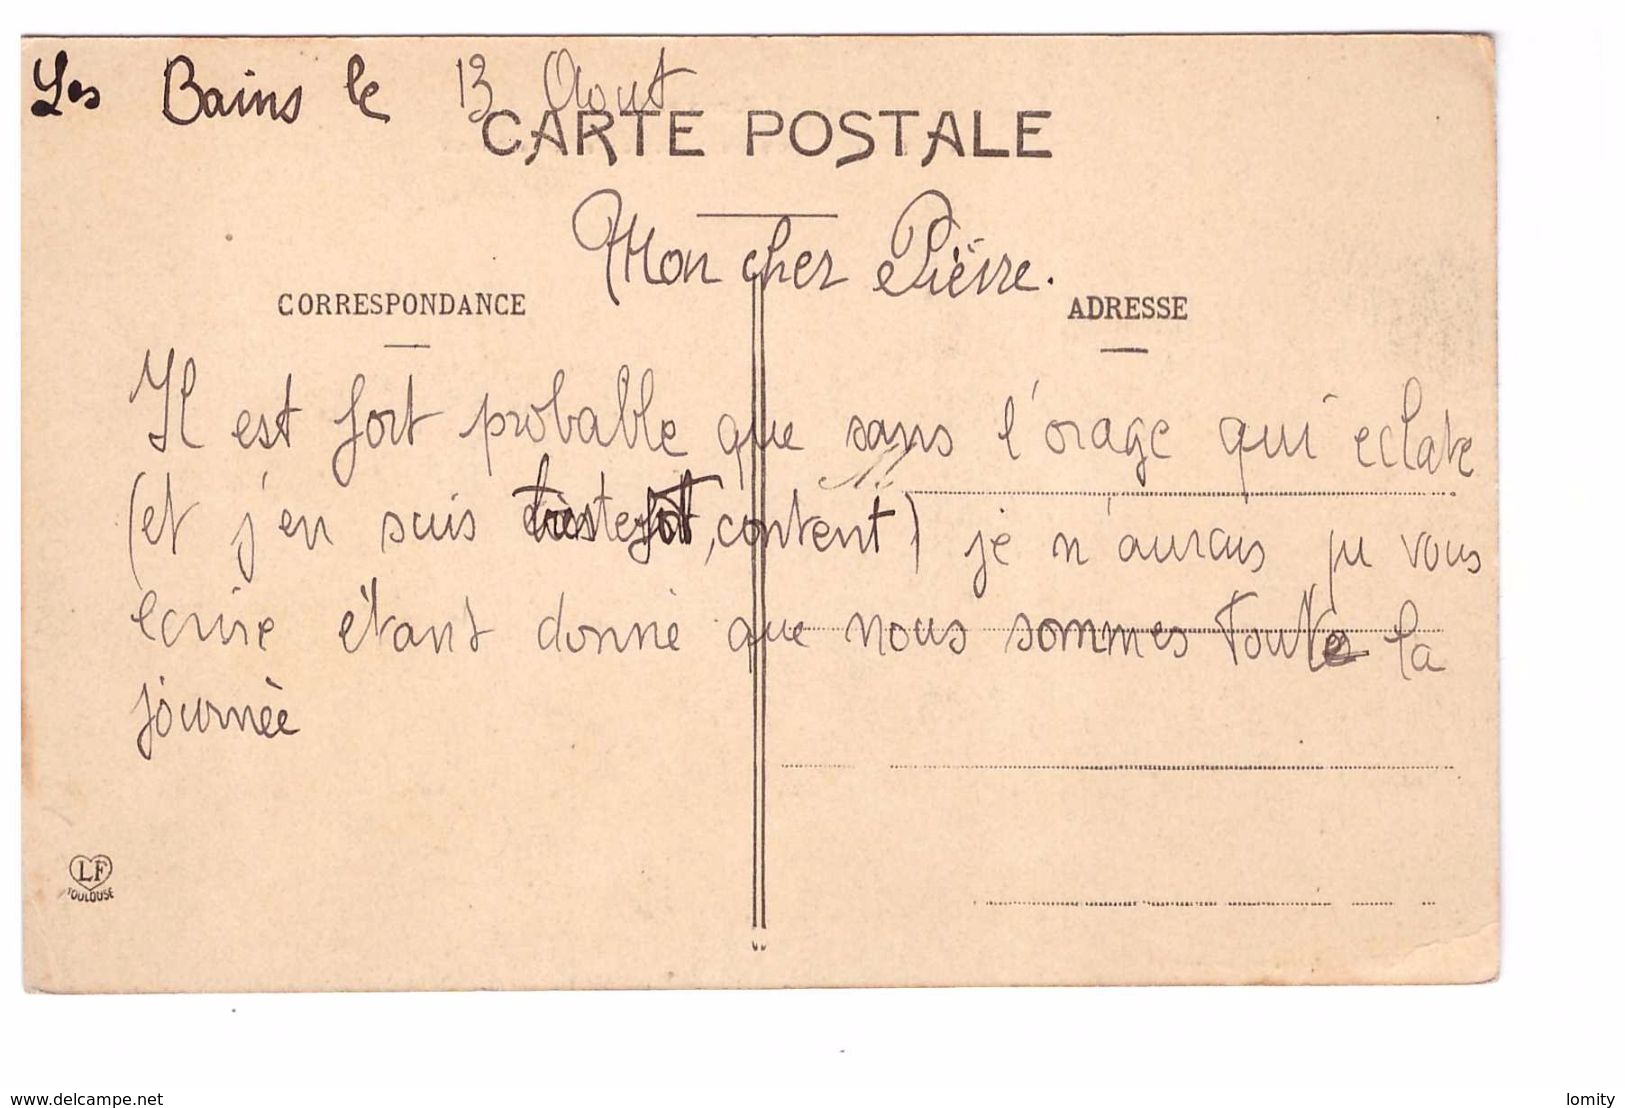 Les Bains le 13 Aout
CARTE POSTALE
Mon cher Pièrre.
CORRESPONDANCE
ADRESSE
Il est fort probable que sans l'orage qui eclate
(et j'en suis très fort, content) je n'aurais pu vous
ecrire étant donné que nous sommes toute la
journèe
LF
TOULOUSE
www.delcampe.net
lomity